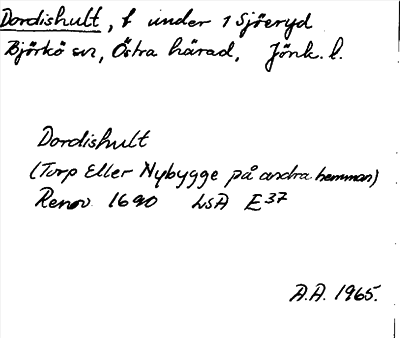 Dordishult, t under 1 Sjöeryd
Björkö sn, Östra härad, Jönk. l.
Dordishult
(Torp Eller Nybygge på andra hemman)
Renov. 1690 LSA E37
A.A. 1965.